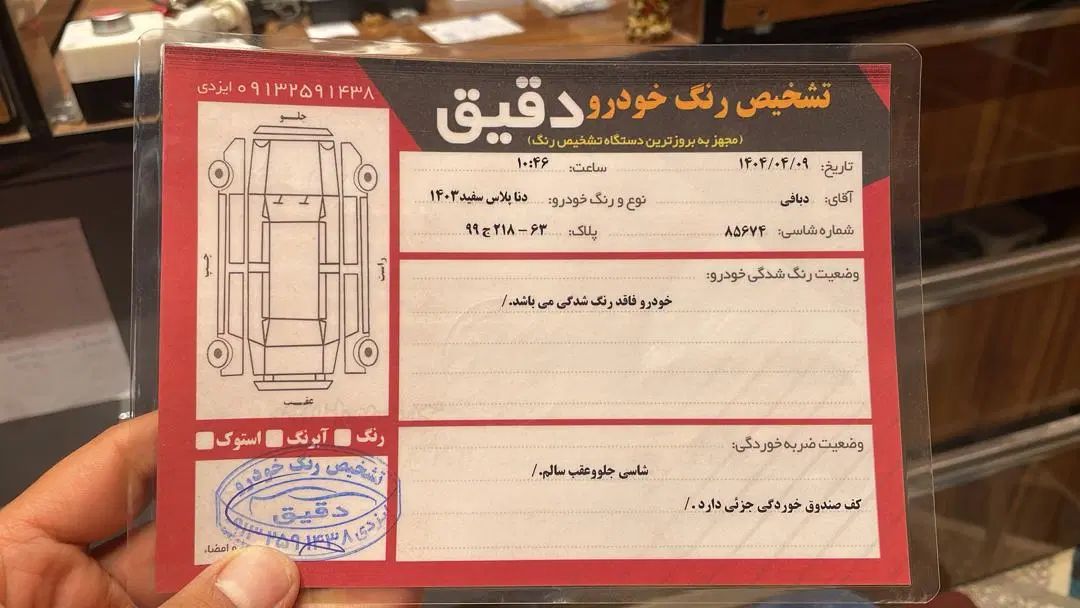 تشخیص رنگ خودرو دقیق
(مجهز به بروزترین دستگاه تشخیص رنگ)
۰۹۱۳۲۵۹۱۴۳۸ ایزدی
تاریخ: ۱۴۰۴/۰۴/۰۹ ساعت: ۱۰:۴۶
آقای: دبافی نوع و رنگ خودرو: دنا پلاس سفید ۱۴۰۳
شماره شاسی: ۸۵۶۷۴ پلاک: ۶۳ – ۲۱۸ ج ۹۹
وضعیت رنگ شدگی خودرو:
خودرو فاقد رنگ شدگی می باشد./
وضعیت ضربه خوردگی:
شاسی جلووعقب سالم./
کف صندوق خوردگی جزئی دارد./
جلو
چپ
راست
عقب
رنگ آبرنگ استوک
تشخیص رنگ خودرو
دقیق
ایزدی ۰۹۱۳۲۵۹۱۴۳۸
و امضاء